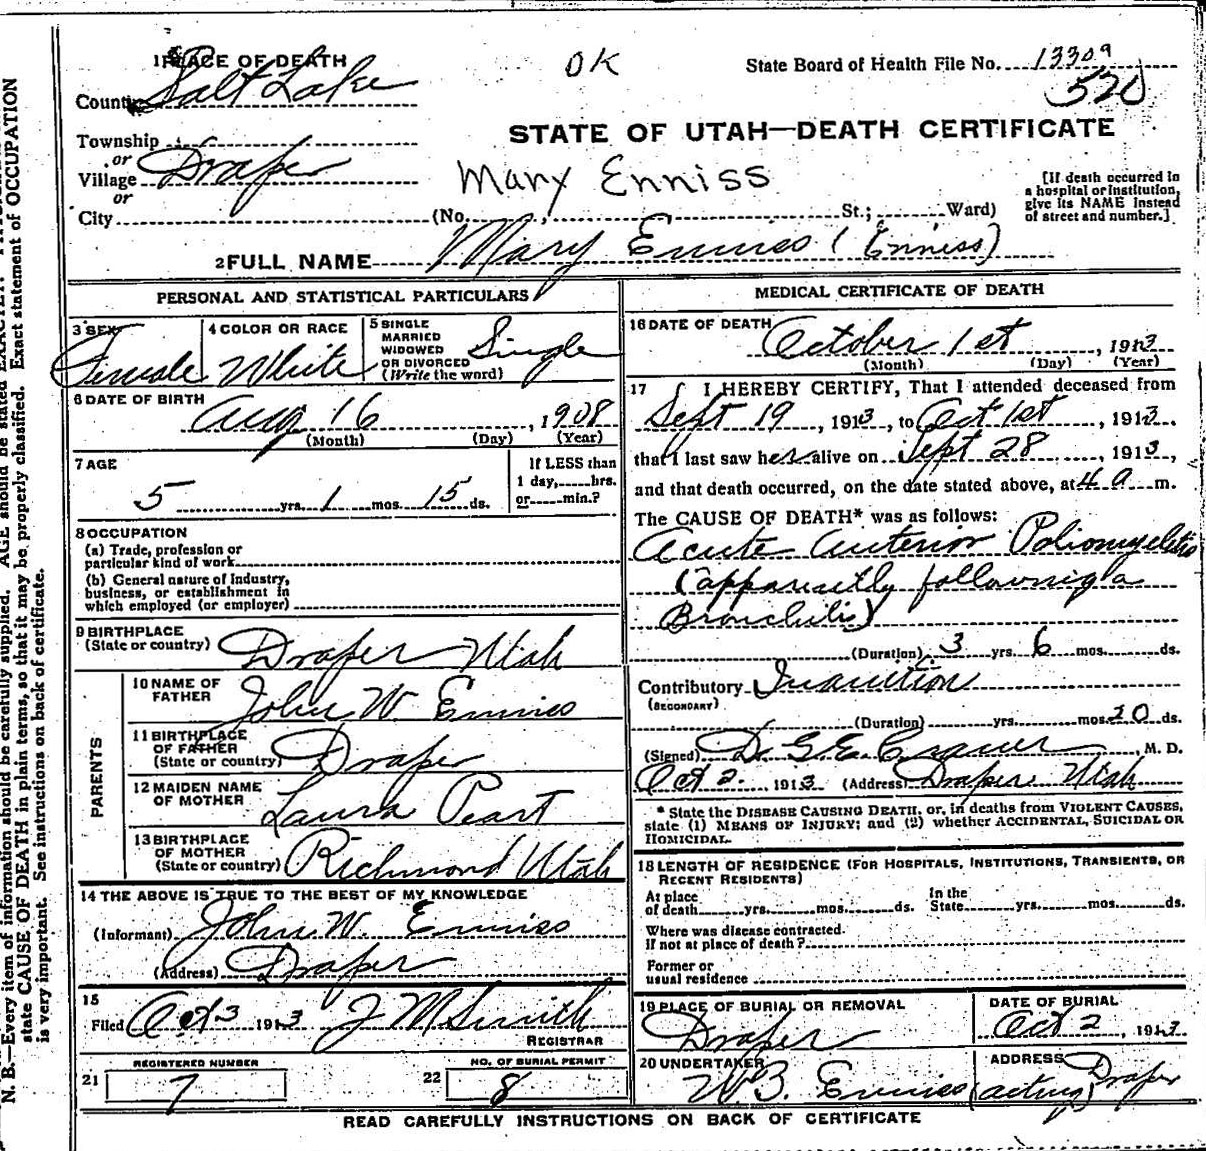 1 PLACE OF DEATH
OK
State Board of Health File No. 13309
County Salt Lake
520
STATE OF UTAH—DEATH CERTIFICATE
Township
or
Village Draper
or
Mary Enniss
[If death occurred in
a hospital or institution,
give its NAME instead
of street and number.]
City (No. St.; Ward)
2 FULL NAME Mary Enniss (Enniss)
PERSONAL AND STATISTICAL PARTICULARS
3 SEX Female
4 COLOR OR RACE White
5 SINGLE
MARRIED
WIDOWED
OR DIVORCED
(Write the word) Single
6 DATE OF BIRTH
Aug 16, 1908
(Month) (Day) (Year)
7 AGE
5 yrs. 1 mos. 15 ds.
If LESS than
1 day, hrs.
or min.?
8 OCCUPATION
(a) Trade, profession or
particular kind of work
(b) General nature of industry,
business, or establishment in
which employed (or employer)
9 BIRTHPLACE
(State or country) Draper Utah
PARENTS
10 NAME OF
FATHER John W Enniss
11 BIRTHPLACE
OF FATHER
(State or country) Draper
12 MAIDEN NAME
OF MOTHER Laura Peart
13 BIRTHPLACE
OF MOTHER
(State or country) Richmond Utah
14 THE ABOVE IS TRUE TO THE BEST OF MY KNOWLEDGE
(Informant) John W. Enniss
(Address) Draper
15
Filed Oct 3 1913 J M Smith
REGISTRAR
REGISTERED NUMBER
21 7
NO. OF BURIAL PERMIT
22 8
MEDICAL CERTIFICATE OF DEATH
16 DATE OF DEATH
October 1st, 1913
(Month) (Day) (Year)
17 I HEREBY CERTIFY, That I attended deceased from
Sept 19, 1913, to Oct 1st, 1913
that I last saw her alive on Sept 28, 1913,
and that death occurred, on the date stated above, at 4 a m.
The CAUSE OF DEATH* was as follows:
Acute Anterior Poliomyelitis
(apparently following a
Bronchitis)
(Duration) 3 yrs 6 mos. ds.
Contributory Inanition
(SECONDARY)
(Duration) yrs. mos. 20 ds.
(Signed) Dr G.E. Cramer, M. D.
Oct 2, 1913 (Address) Draper Utah
* State the DISEASE CAUSING DEATH, or, in deaths from VIOLENT CAUSES,
state (1) MEANS OF INJURY; and (2) whether ACCIDENTAL, SUICIDAL OR
HOMICIDAL.
18 LENGTH OF RESIDENCE (FOR HOSPITALS, INSTITUTIONS, TRANSIENTS, OR
RECENT RESIDENTS)
At place
of death yrs. mos. ds.
In the
State yrs. mos. ds.
Where was disease contracted.
If not at place of death?
Former or
usual residence
19 PLACE OF BURIAL OR REMOVAL
Draper
DATE OF BURIAL
Oct 2, 1913
20 UNDERTAKER
W.B. Enniss (acting)
ADDRESS
Draper
READ CAREFULLY INSTRUCTIONS ON BACK OF CERTIFICATE
N. B.—Every item of information should be carefully supplied. AGE should be stated EXACTLY.
state CAUSE OF DEATH in plain terms, so that it may be properly classified. Exact statement of OCCUPATION
is very important. See instructions on back of certificate.